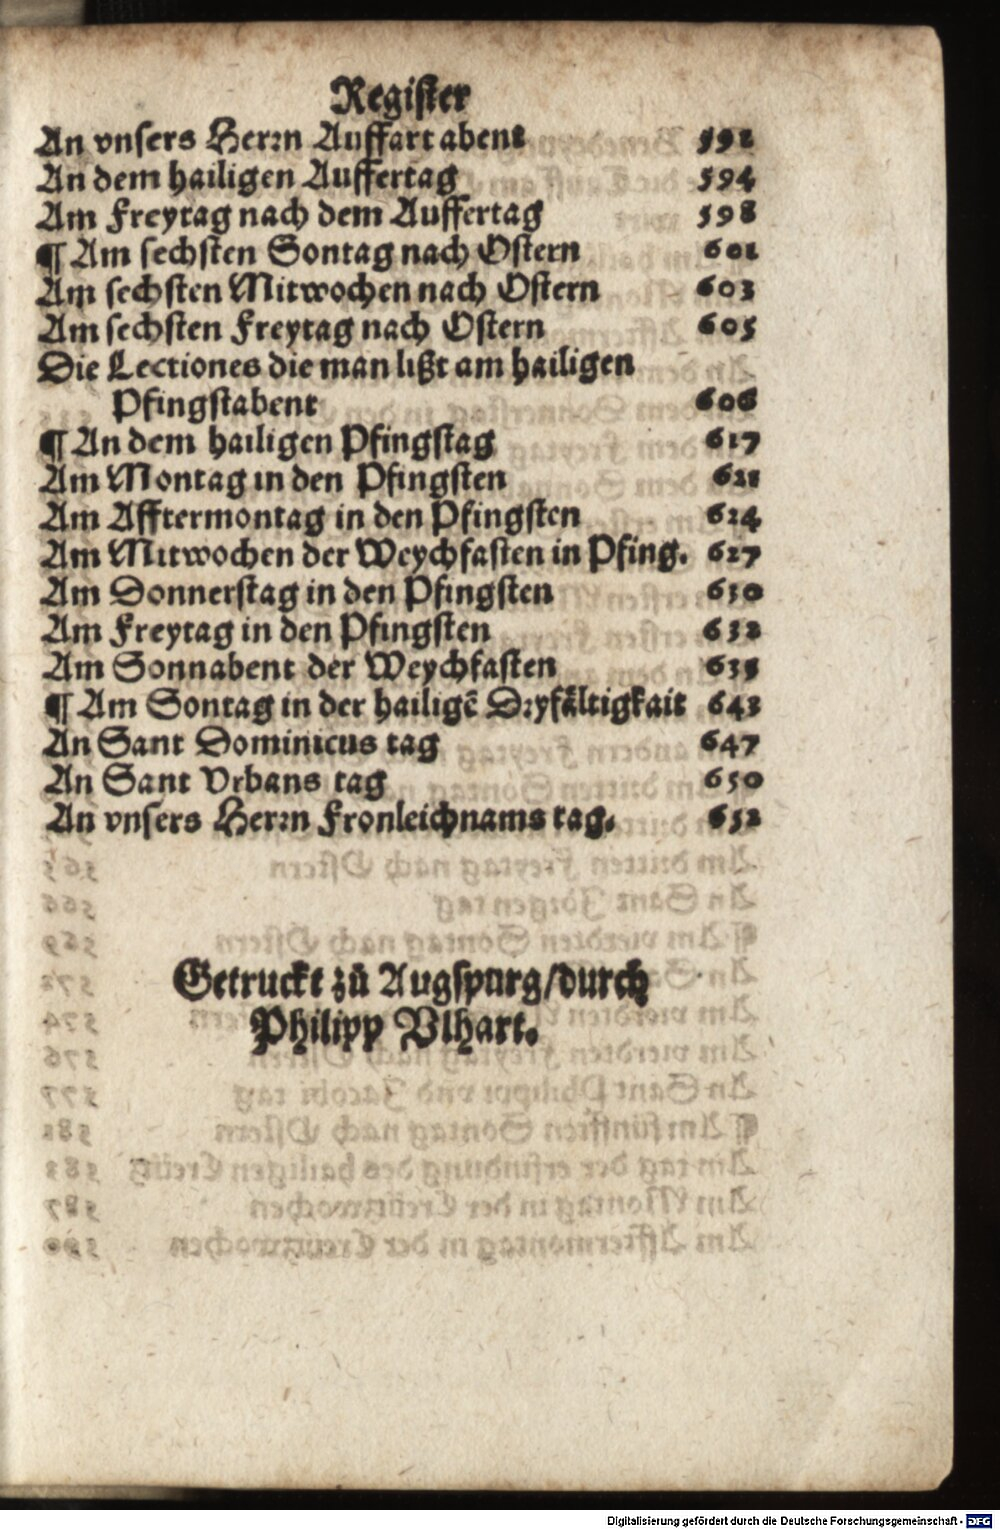 Register
An vnsers Herrn Auffart abent 592
An dem hailigen Auffertag 594
Am Freytag nach dem Auffertag 598
¶ Am sechsten Sontag nach Ostern 601
Am sechsten Mitwochen nach Ostern 603
Am sechsten Freytag nach Ostern 605
Die Lectiones die man lißt am hailigen
Pfingstabent 606
¶ An dem hailigen Pfingstag 617
Am Montag in den Pfingsten 621
Am Afftermontag in den Pfingsten 624
Am Mitwochen der Weychfasten in Pfing. 627
Am Donnerstag in den Pfingsten 630
Am Freytag in den Pfingsten 632
Am Sonnabent der Weychfasten 635
¶ Am Sontag in der hailigẽ Dryfåltigkait 643
An Sant Dominicus tag 647
An Sant Vrbans tag 650
An vnsers Herrn Fronleichnams tag. 652
Getruckt zů Augspurg/durch
Philipp Vlhart.
Digitalisierung gefördert durch die Deutsche Forschungsgemeinschaft - DFG